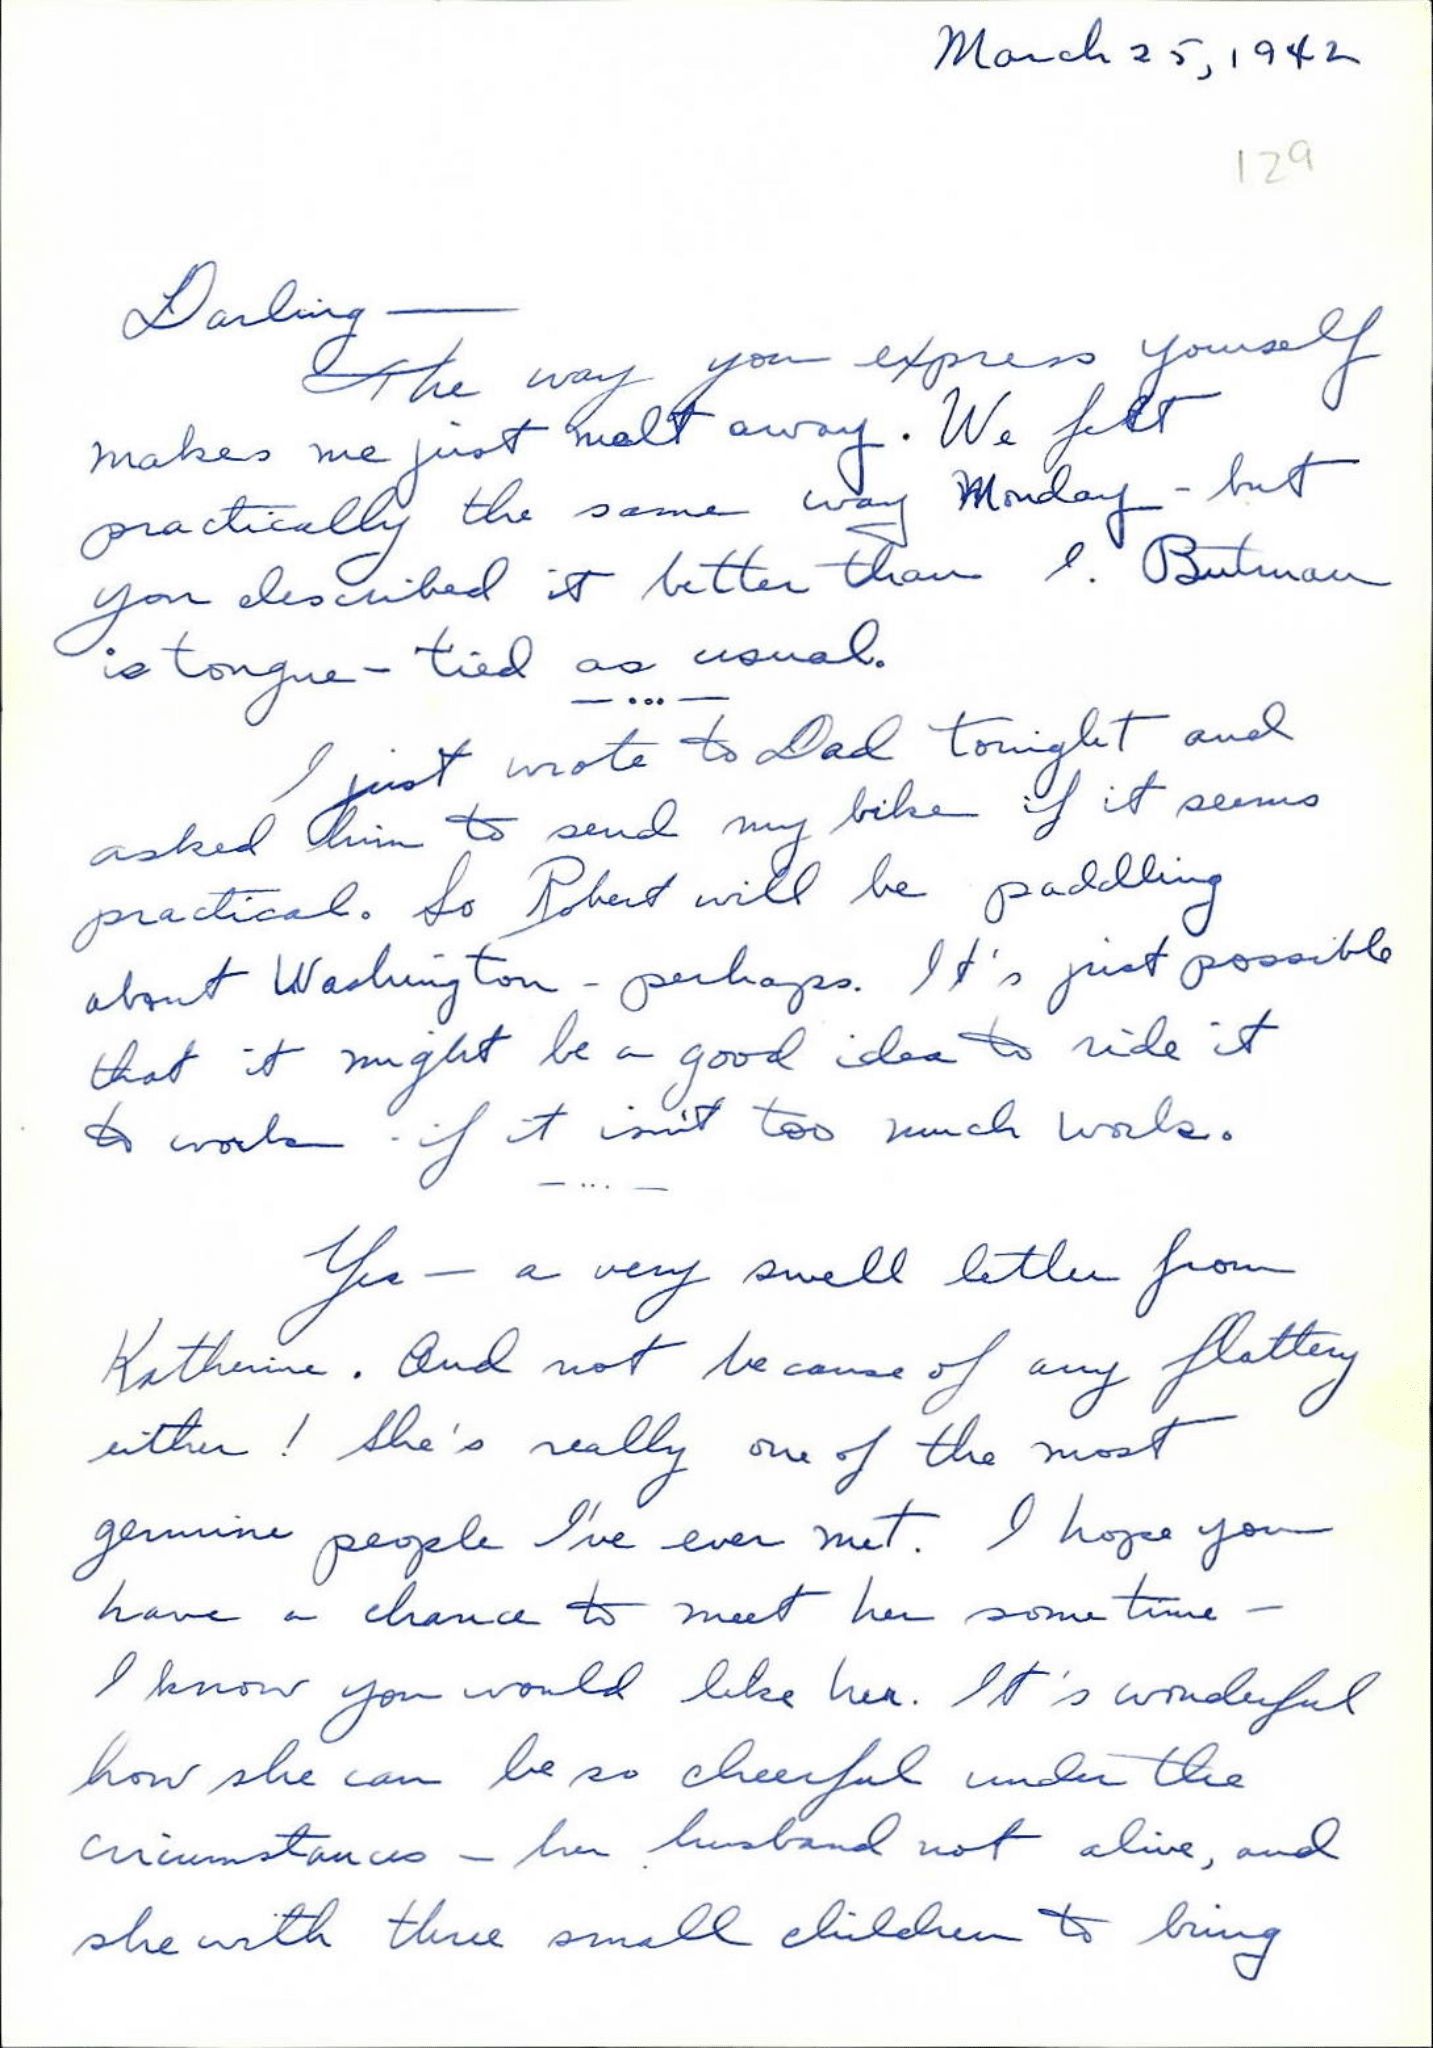 March 25, 1942
129
Darling —
The way you express yourself
makes me just melt away. We felt
practically the same way Monday - but
you described it better than I. Butman
is tongue-tied as usual.
— ... —
I just wrote to Dad tonight and
asked him to send my bike if it seems
practical. So Robert will be paddling
about Washington - perhaps. It's just possible
that it might be a good idea to ride it
to work - if it isn't too much work.
— ... —
Yes — a very swell letter from
Katherine. And not because of any flattery
either! She's really one of the most
genuine people I've ever met. I hope you
have a chance to meet her some time —
I know you would like her. It's wonderful
how she can be so cheerful under the
circumstances — her husband not alive, and
she with three small children to bring